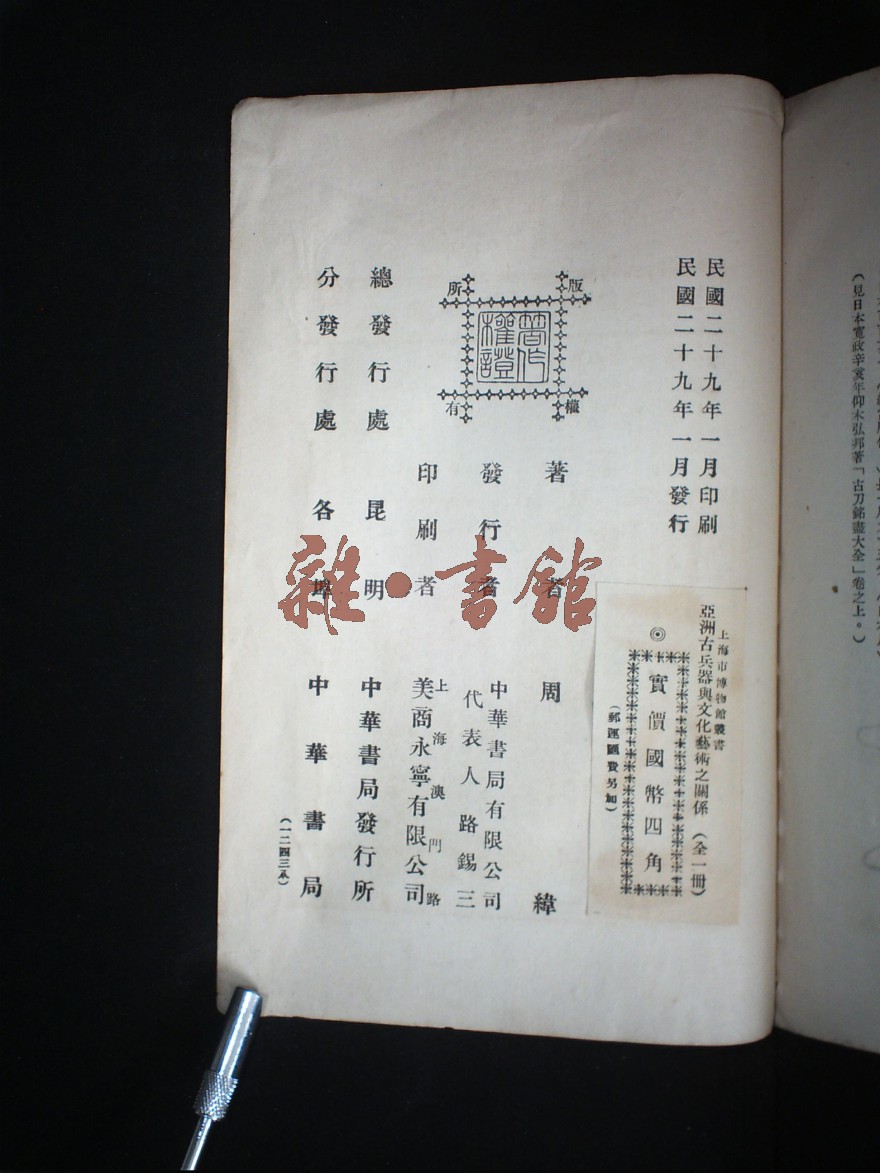 民國二十九年一月印刷
民國二十九年一月發行
上海市博物館叢書
亞洲古兵器與文化藝術之關係(全一冊)
◎實價國幣四角
(郵運匯費另加)
版權所有
著作權證
著者 周緯
發行者 中華書局有限公司
代表人路錫三
印刷者 上海澳門路
美商永寧有限公司
總發行處 昆明 中華書局發行所
分發行處 各埠 中華書局
(一二四三八)
雜·書館
(見日本寬政辛亥年仰木弘邦著「古刀銘盡大全」卷之上。)